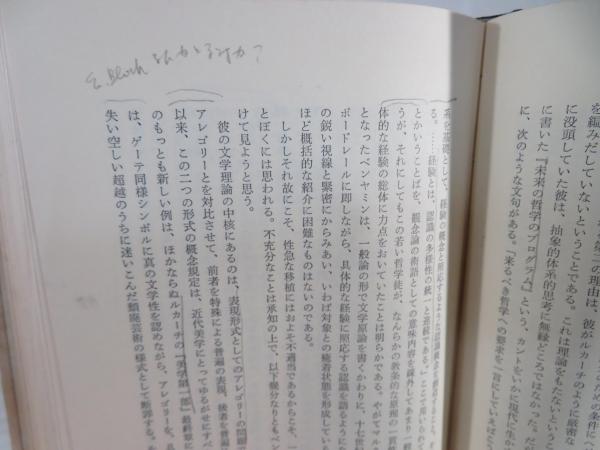 を編みだしていないということである。これは理論をもたないというこ
に没頭していた彼は、抽象的体系的思考に無縁どころではなかった。だが
に書いた『未来の哲学のプログラム』という、カントをいかに現代に生か
に、次のような文句がある。「来るべき哲学への要求を一言にしていえばこ
E. Bloch
る。……経験とは、認識の多様性の統一と連続である。」ここで用いられて
とかいうことばを、観念論の術語としての意味内容を疎外してあまり一般
うが、それにしてもこの若い哲学徒が、なんらかの教条的な原理の一貫
体的な経験の総体に力点をおいていたことは明らかである。やがてマル
となったベンヤミンは、一般論の形で文学原論を書くかわりに、十七世
ボードレールに即しながら、具体的な経験に照応する認識を語るようにな
の鋭い視線と緊密にからみあい、いわば対象との癒着状態を形成している
ほど概括的な紹介に困難なものはないのである。
しかしそれ故にこそ、性急な移植にはおよそ不適当であるからこそ、一
とぼくには思われる。不充分なことは承知の上で、以下幾分なりともベン
けて見ようと思う。
彼の文学理論の中核にあるのは、表現形式としてのアレゴリーの問題で
アレゴリーとを対比させて、前者を特殊による普遍の表現、後者を普遍
以来、この二つの形式の概念規定は、近代美学にとってゆるがせにすべ
のもっとも新しい例は、ほかならぬルカーチの『美学第一部』最終章に
は、ゲーテ同様シンボルに真の文学性を認めながら、アレゴリーを、具
失い空しい超越のうちに迷いこんだ頽廃芸術の様式として断罪する。